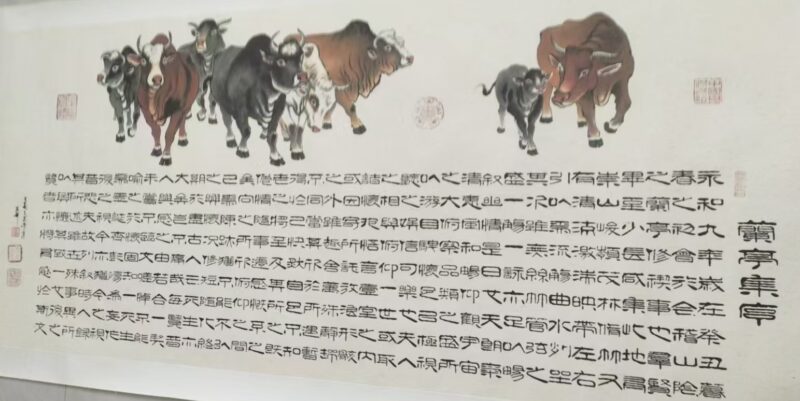 蘭亭集序
永和九年歲在癸丑暮
春之初會于會稽山陰
之蘭亭脩禊事也群賢
畢至少長咸集此地有
崇山峻領茂林脩竹又
有清流激湍映帶左右
引以為流觴曲水列坐
其次雖無絲竹管弦之
盛一觴一詠亦足以暢
敘幽情是日也天朗氣
清惠風和暢仰觀宇宙
之大俯察品類之盛所
以遊目騁懷足以極視
聽之娛信可樂也夫人
之相與俯仰一世或取
諸懷抱悟言一室之內
或因寄所託放浪形骸
之外雖趣舍萬殊靜躁
不同當其欣於所遇暫
得於己快然自足不知
老之將至及其所之既
惓情隨事遷感慨係之
矣向之所欣俛仰之間
已為陳跡猶不能不以
之興懷況脩短隨化終
期於盡古人云死生亦
大矣豈不痛哉每覽昔
人興感之由若合一契
未嘗不臨文嗟悼不能
喻之於懷固知一死生
為虛誕齊彭殤為妄作
後之視今亦由今之視
昔悲夫故列敘時人錄
其所述雖世殊事異所
以興懷其致一也後之
覽者亦將有感於斯文